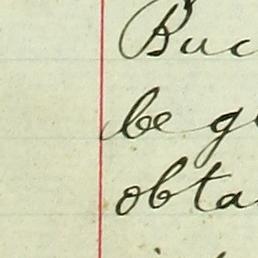 Buc
be g
obta